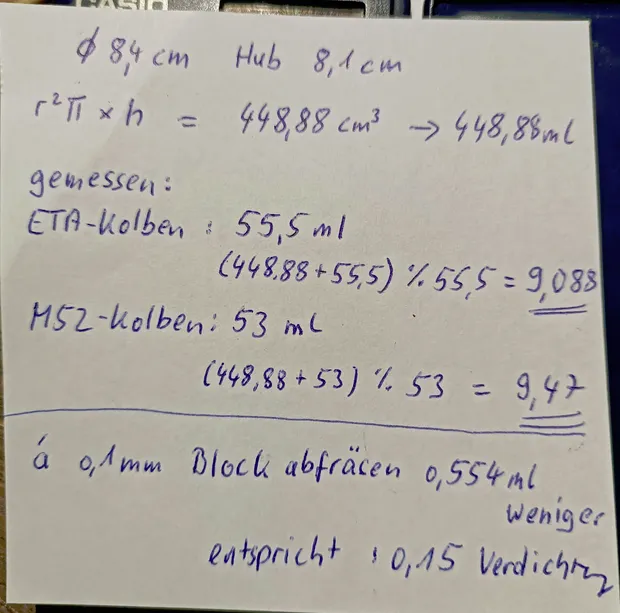 CASIO
φ 8,4 cm Hub 8,1 cm
r²π × h = 448,88 cm³ → 448,88 ml
gemessen:
ETA-Kolben : 55,5 ml
(448,88 + 55,5) % 55,5 = 9,088
M52-Kolben: 53 ml
(448,88 + 53) % 53 = 9,47
á 0,1 mm Block abfräsen 0,554 ml
weniger
entspricht : 0,15 Verdichtung